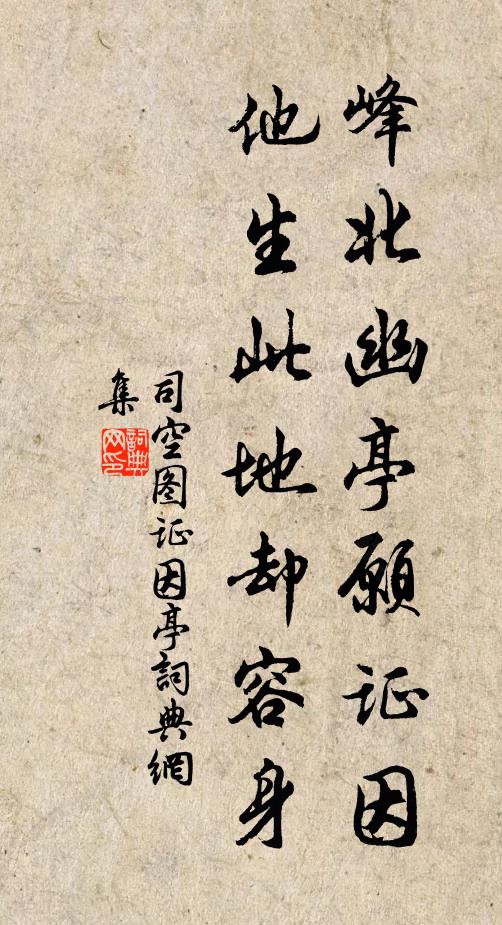 峰北幽亭願证因
他生此地却容身
司空图证因亭詞典網
集
詞典网印